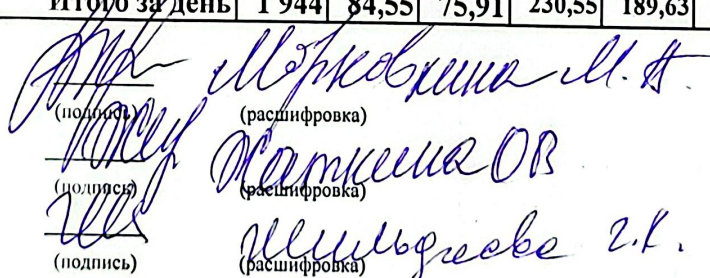 Итого за день 1 944 84,55 75,91 230,55 189,63
Морковкина М.А.
(подпись) (расшифровка)
Жаткина ОВ
(подпись) (расшифровка)
г.к.
(подпись) (расшифровка)